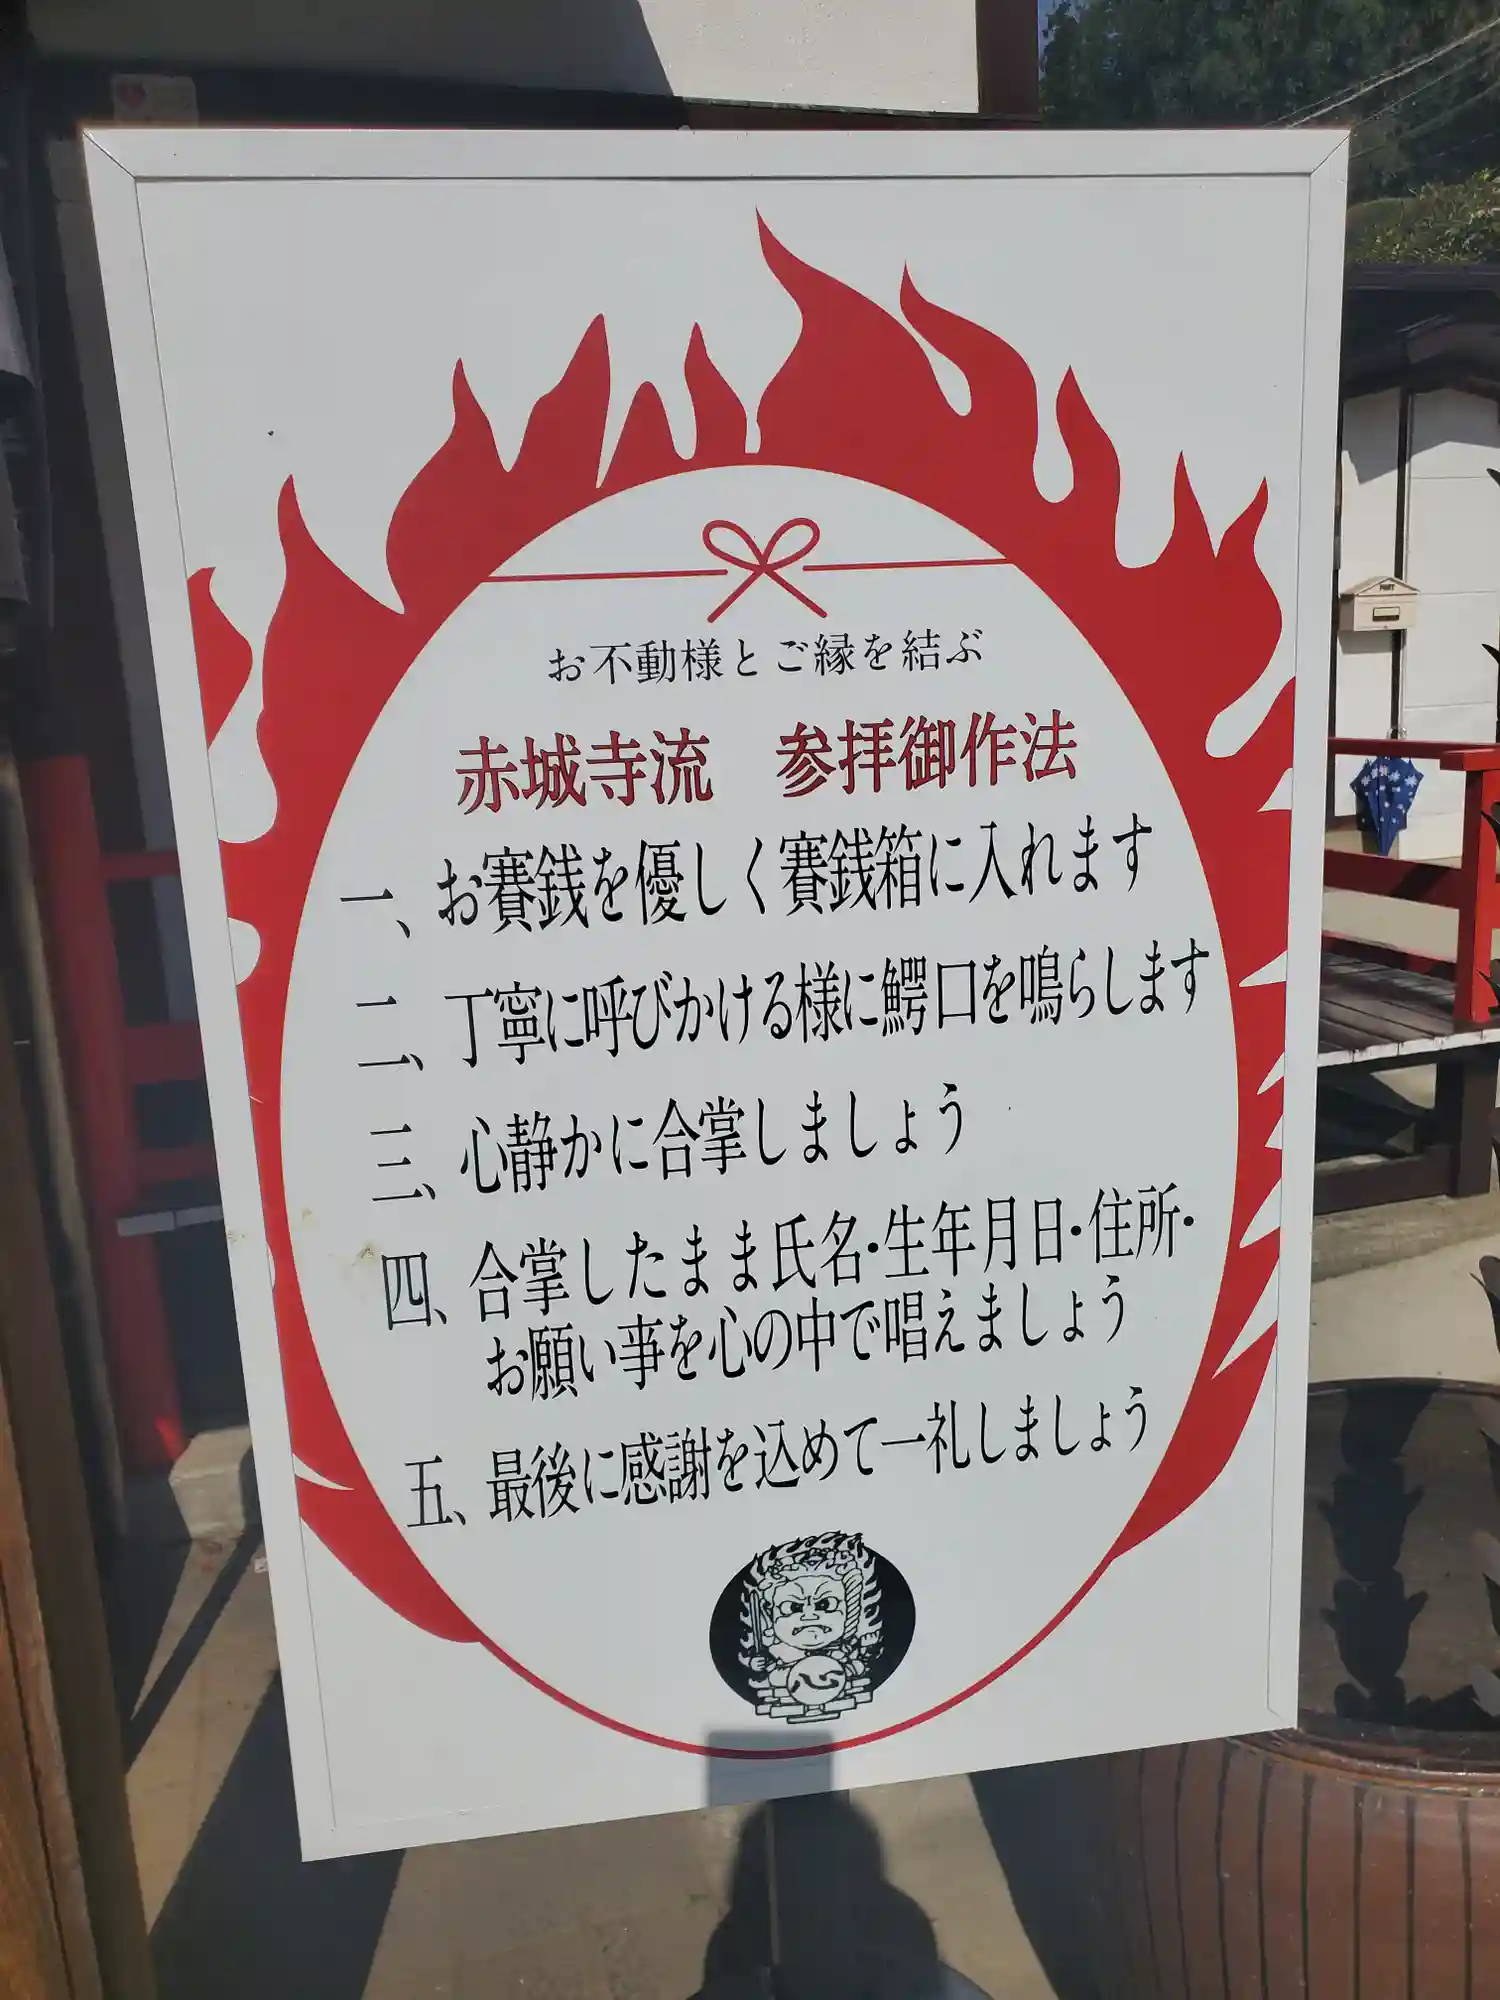 お不動様とご縁を結ぶ
赤城寺流　参拝御作法
一、お賽銭を優しく賽銭箱に入れます
二、丁寧に呼びかける様に鰐口を鳴らします
三、心静かに合掌しましょう
四、合掌したまま氏名・生年月日・住所・
お願い事を心の中で唱えましょう
五、最後に感謝を込めて一礼しましょう
心
POST